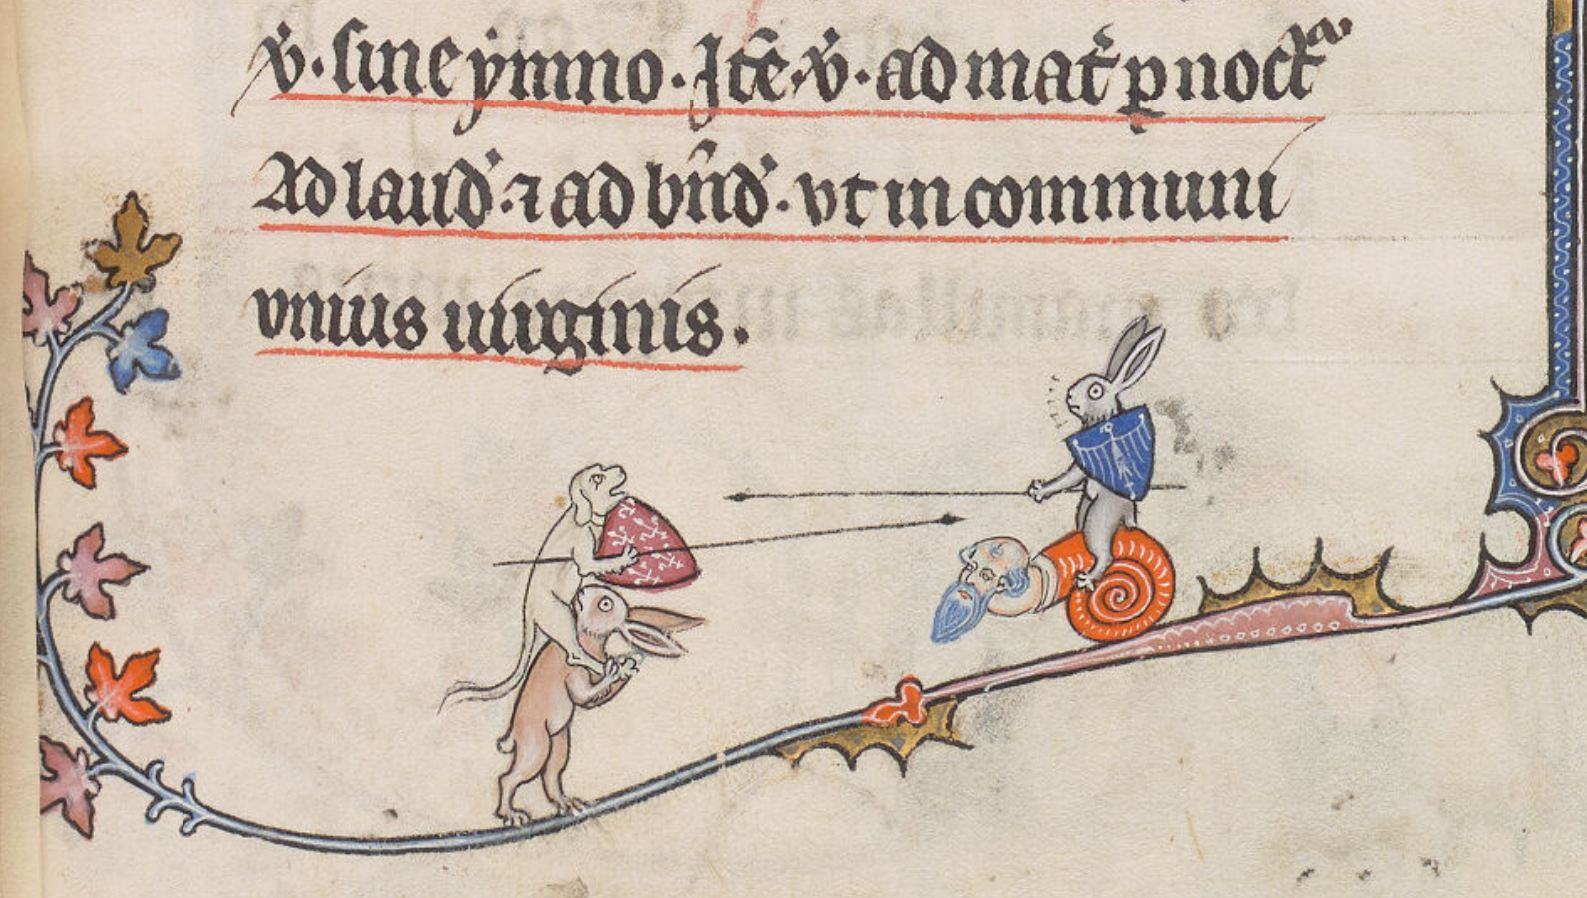 v̇. sine ymno. Jtē. v̇. ad mat᷒ p̱ noctᵃ
Ad laud᷒. ⁊ ad bn̄d᷒. vt in communi
vnius uirginis.